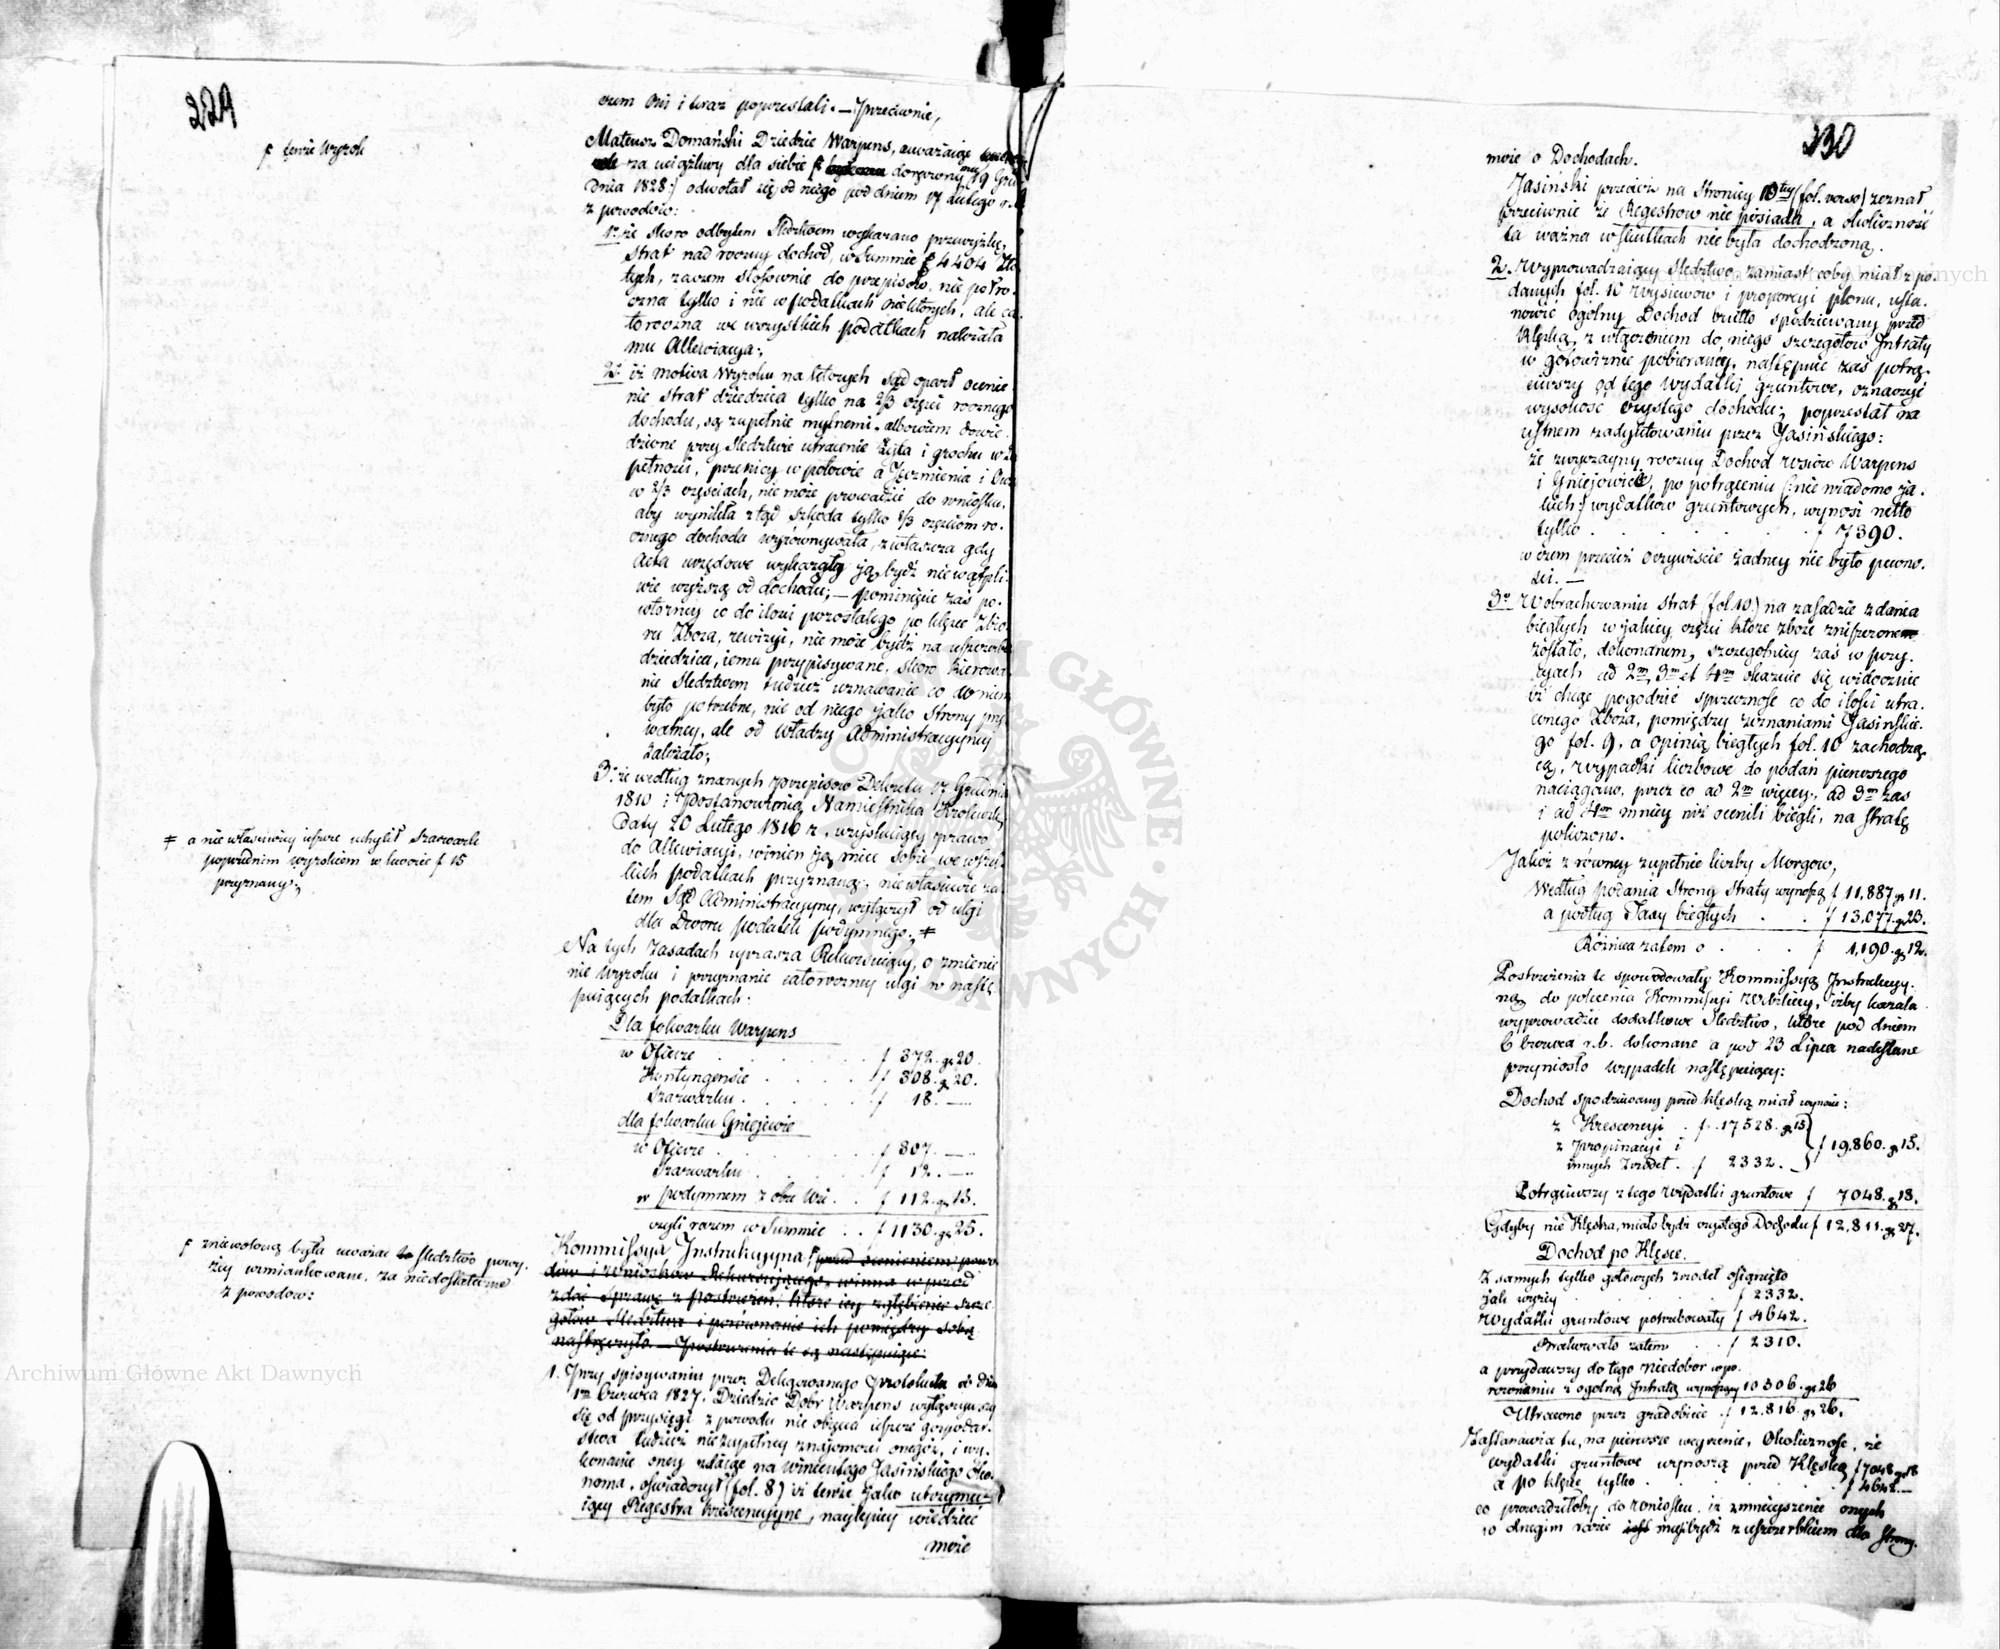 229
ƒ tenże Wyrok
czem Oni i teraz poprzestali. — Przeciwnie,
Mateusz Domański Dziedzic Warpens, uważaiąc
za uciążliwy dla siebie doręczony mu 19 Gru
dnia 1828 odwołał się od niego pod dniem 17 Lutego r. b.
z powodów:
1. że skoro odbytem Śledztwem wykazano przewyżkę
strat nad roczny dochód, w Summie f 4404 Zło
tych, zatem stosownie do przepisów, nie półro-
czna tylko i nie w podatkach niektórych, ale ca
łoroczna we wszystkich podatkach należała
mu Allewiacya;
2. iż motiva Wyroku na których Sąd oparł ocenie
nie strat dziedzica tylko na 2/3 części rocznego
dochodu, są zupełnie mylnemi, albowiem dowie
dzione przy Śledztwie utracenie Żyta i grochu w zu
pełności, pszenicy w połowie a Jęczmienia i Owsa
w 2/3 częściach, nie może prowadzić do wniosku,
aby wynikła ztąd szkoda tylko 2/3 częściom ro-
cznego dochodu wyrównywała, zwłaszcza gdy
Akta urzędowe wykazały ją bydź niewątpli-
wie wyższą od dochodu; — pominięcie zaś po-
wtórney co do ilości pozostałego po klęsce Zbio
ru Zboża, rewizyi, nie może bydź na uszczerbek
dziedzica, iemu przypisywane, skoro kierowa-
nie Śledztwem tudzież uznawanie co do niego
było potrzebne, nie od niego jako Strony pry
watney, ale od Władzy Administracyjney
zależało;
3. że według znanych przepisów Dekretu 17 Grudnia
1810 i Postanowienia Namiestnika Królewsk.
Daty 20 Lutego 1816 r., wzyskuiący prawo
do Allewiacyi, winien ją mieć sobie we wszel
kich podatkach przyznaną; niewłaściwie za-
tem Sąd Administracyjny, wyłączył od ulgi
dla Dworu podatek podymnego; ≠
≠ a nie właściwiey ieszcze uchylił Szarwark
poprzednim wyrokiem w kwocie f 15
przyznany;
Na tych zasadach uprasza Rekurruiący, o zmienie
nie Wyroku i przyznanie całoroczney ulgi w nastę
puiących podatkach:
Dla folwarku Warpens
w Ofierze . . . f 372. gr 20.
Kontyngensie . . . f 308. gr 20.
Szarwarku . . . f 18. —
dla folwarku Gniejewie
w Ofierze . . . f 307. —
Szarwarku . . . f 12. —
w podymnem z obu Wsi . . f 112. gr 15.
czyli razem w Summie . . f 1130. gr 25.
Kommissya Instrukcyjna ƒ przed ocenieniem powo
dów i wniosków Rekurruiącego, winna wprzód
zdać Sprawę z postrzeżeń, które iey zgłębienie szcze
gółów Śledztwa i porównanie ich pomiędzy sobą
nastręczyło. — Postrzeżenia te są następuiące:
ƒ zniewoloną była uważać śledztwo powy-
żey wzmiankowane, za niedostateczne
z powodów:
1. Przy spisywaniu przez Delegowanego Protokułu do dnia
12 Czerwca 1827. Dziedzic Dóbr Warpens wyłączywszy
się od przysięgi z powodu nie obięcia ieszcze gospodar-
stwa tudzież niezupełney znajomości onegoż, i wy-
konanie oney zdaiąc na Wincentego Jasińskiego Eko-
noma, oświadczył (fol. 8) iż tenże jako utrzymu-
iący Regestra Krescencyjne, naylepiey wiedzieć
może
230
może o Dochodach.
Jasiński przecież na Stronicy 10tey (fol. verso) zeznał
przeciwnie że Regestrów nie posiada, a okoliczność
ta ważna w skutkach nie była dochodzoną.
2. Wyprowadzaiący Śledztwo, zamiast coby miał z po
danych fol. 10 wysiewów i proporcyi plonu, usta-
nowić ogólny Dochód brutto spodziewany przed
Klęską, z włączeniem do niego szczegółów Intraty
w gotowiznie pobieraney, następnie zaś potrą-
ciwszy od tego Wydatki gruntowe, oznaczyć
wysokość czystego dochodu; poprzestał na
ustnem zadyktowaniu przez Jasińskiego:
że zwyczayny roczny Dochód wsiów Warpens
i Gniejowic, po potrąceniu (: nie wiadomo ja-
kich :) wydatków gruntowych, wynosi netto
tylko . . . . . f 7390.
w czem przecież oczywiście żadney nie było pewno-
ści. —
3. W obrachowaniu strat (fol 10.) na zasadzie zdania
biegłych w jakiey części które zboże zniszczone
zostało, dokonanem, szczególniey zaś w pozy-
cyach ad 2m, 3m et 4m okazuie się widocznie
iż chcąc pogodzić sprzeczność co do ilości utra-
conego Zboża, pomiędzy zeznaniami Jasińskie-
go fol. 9, a opinią biegłych fol. 10 zachodzą-
cą, wypadki liczbowe do podań pierwszego
naciągano, przez co ad 2m więcey, ad 3m zaś
i ad 4m mniey niż ocenili biegli, na stratę
policzono.
Jakoż z równey zupełnie liczby Morgów,
Według podania Strony straty wynoszą f 11,887 gr 11.
a podług Taxy biegłych . . f 13,077 gr 23.
Różnica zatem o . . . f 1,190. gr 12.
Postrzeżenia te spowodowały Kommissyą Instrukcyj-
ną do polecenia Kommissyi Wdzkiey, iżby kazała
wyprowadzić dodatkowe Śledztwo, które pod dniem
6 Czerwca r. b. dokonane a pod 23 Lipca nadesłane
przyniosło wypadek następuiący:
Dochód spodziewany przed klęską miał wynosić:
z Krescencyi . f 17528. gr 15
z Propinacyi i
innych źródeł . f 2332. — } f 19,860. gr 15.
Potrąciwszy z tego wydatki gruntowe f 7048. gr 18.
Gdyby nie Klęska, miało bydź czystego Dochodu f 12,811. gr 27.
Dochód po Klęsce.
Z samych tylko gotowych źródeł osiągnięto
jak wyżey . . . f 2332.
Wydatki gruntowe potrzebowały f 4642.
Brakowało zatem . . f 2310.
a przydawszy do tego niedobór w po-
równaniu z ogólną Intratą wynoszący 10506. gr 26
Utracono przez gradobicie . f 12,816. gr 26.
Zastanawia tu, na pierwsze weyrzenie, Okoliczność, że
wydatki gruntowe wynoszą przed Klęską f 7048 gr 18
a po klęsce tylko . . . f 4642. —
co prowadziłoby do wniosku, iż zmnieyszenie onych
w drugim razie musi bydź z uszczerbkiem dla Strony.
Archiwum Główne Akt Dawnych